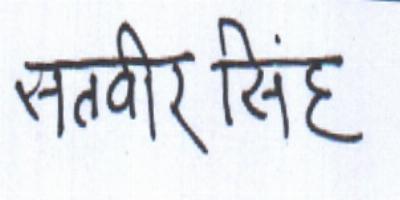 सतवीर सिंह